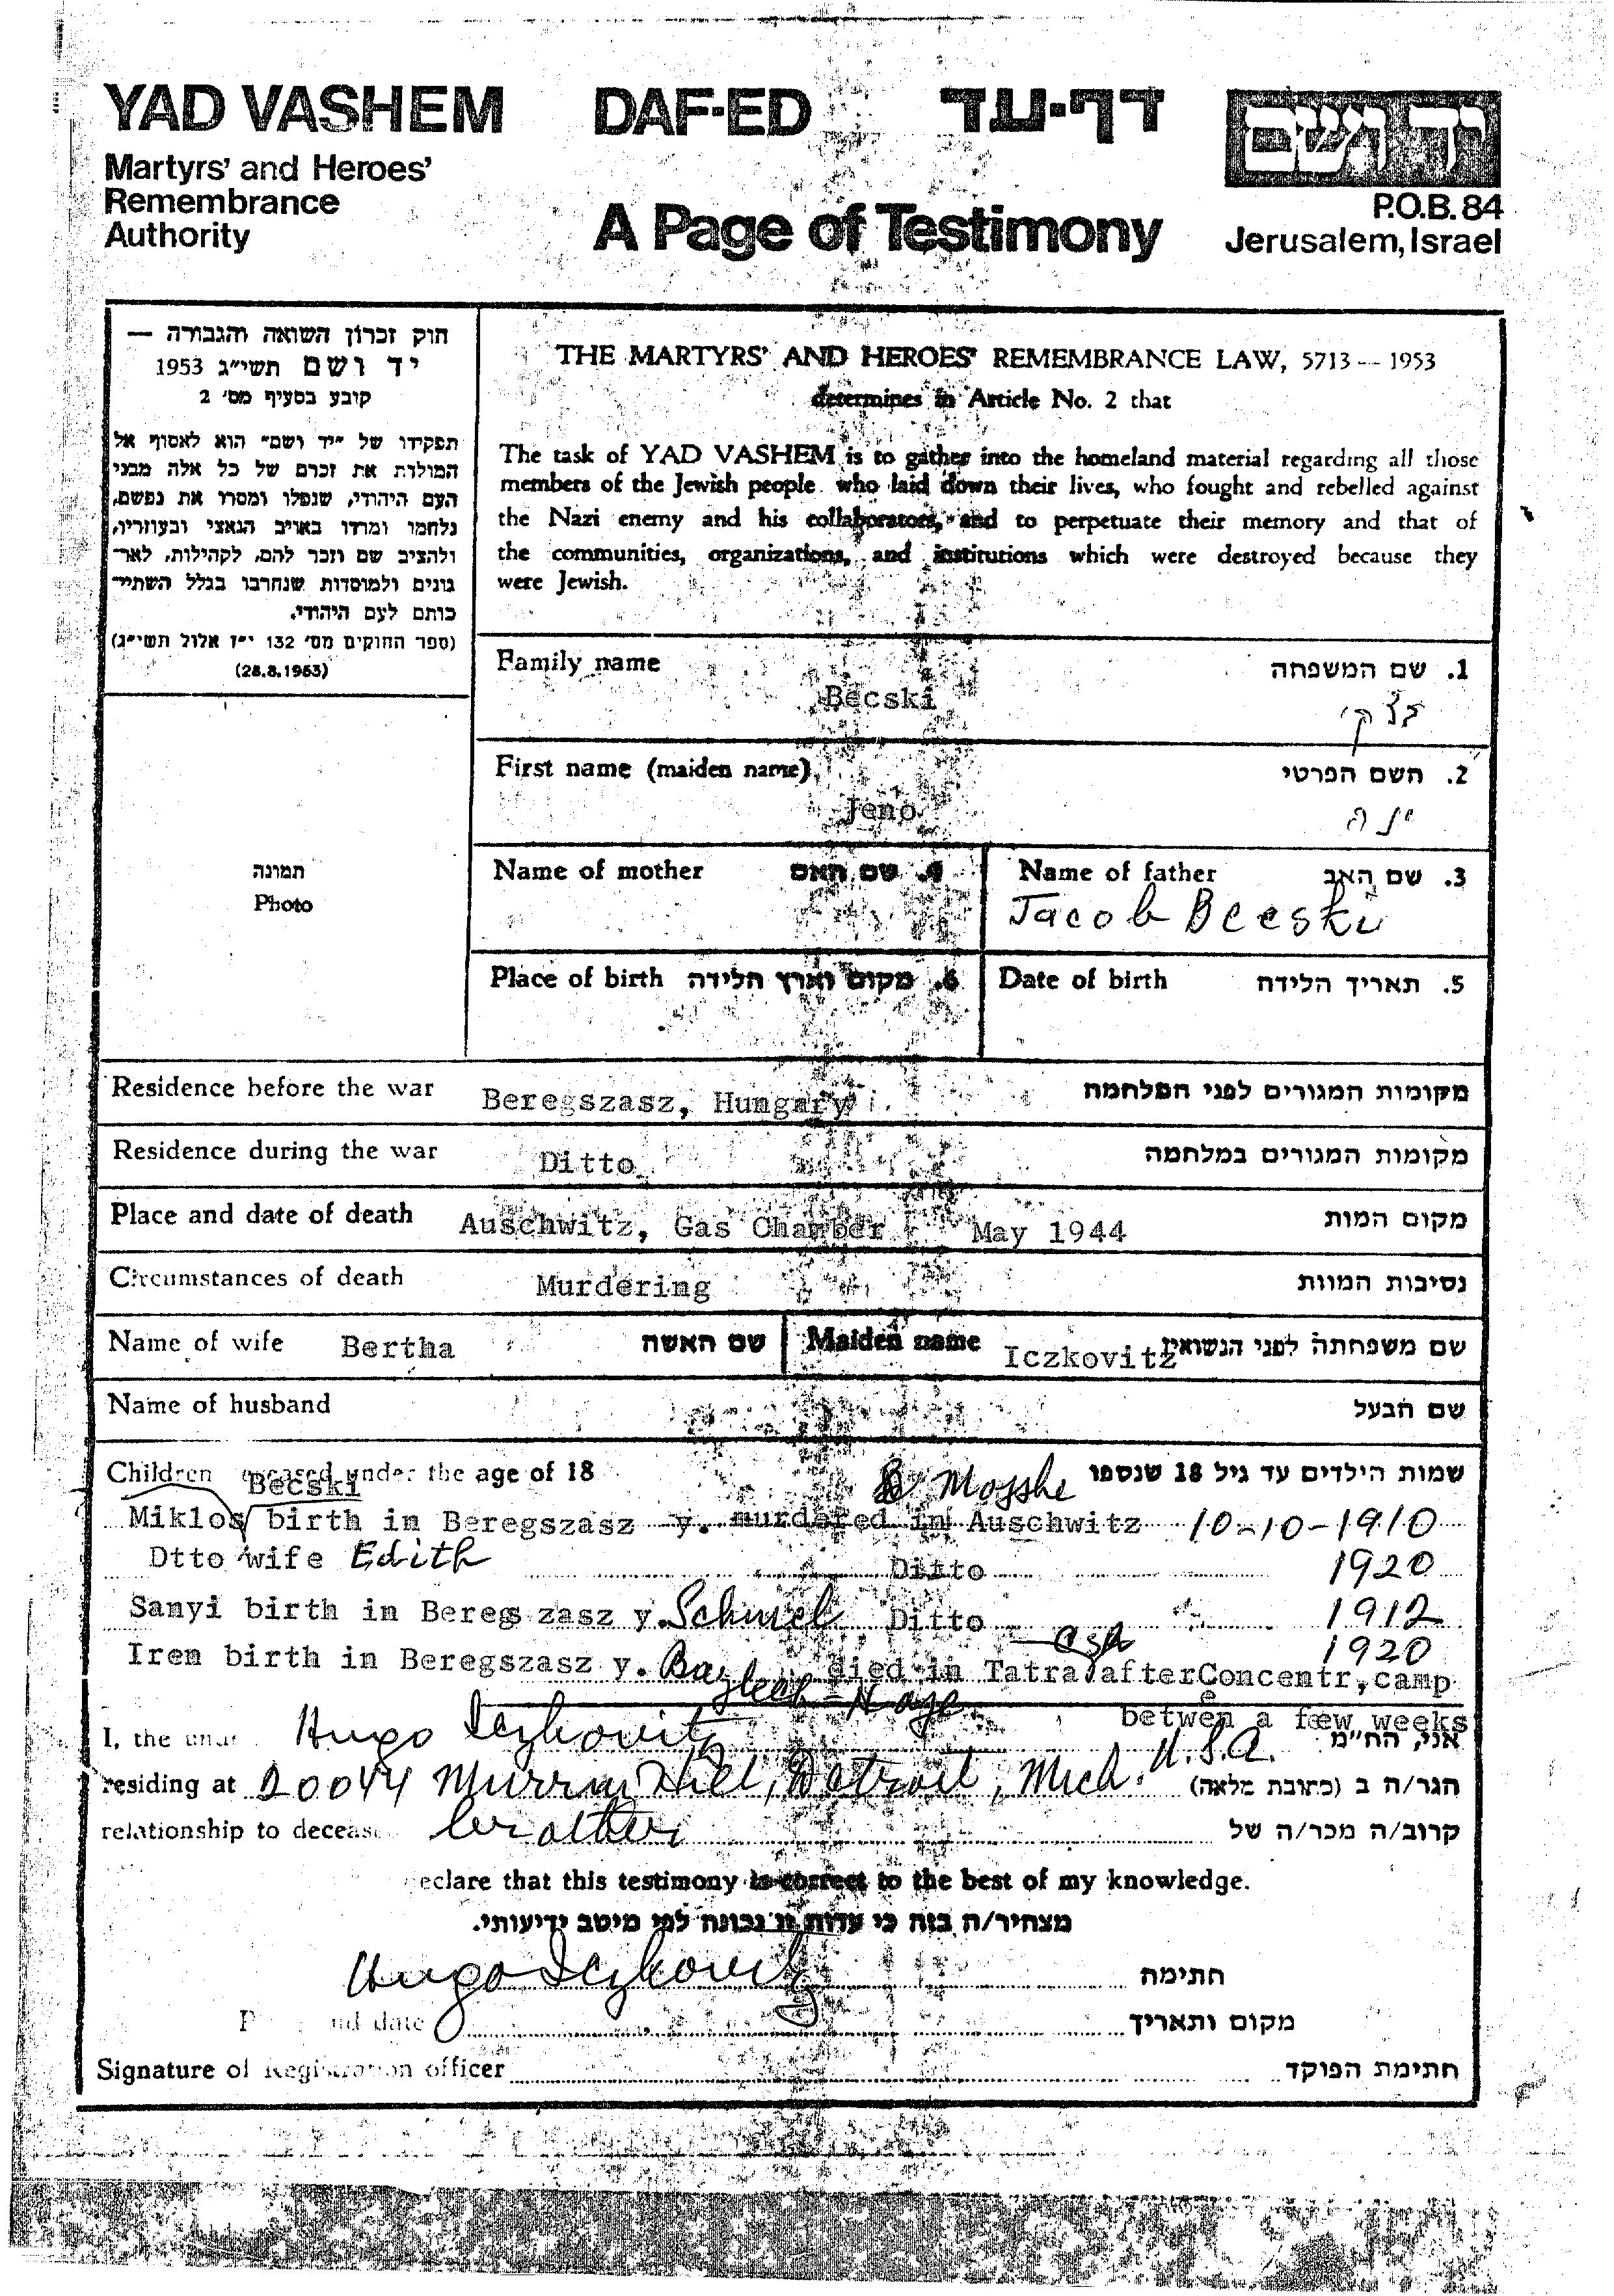 YAD VASHEM DAF-ED דף-עד יד ושם
Martyrs' and Heroes'
Remembrance
Authority
A Page of Testimony
P.O.B. 84
Jerusalem, Israel
חוק זכרון השואה והגבורה —
יד ושם תשי"ג 1953
קובע בסעיף מס' 2
תפקידו של "יד ושם" הוא לאסוף אל
המולדת את זכרם של כל אלה מבני
העם היהודי, שנפלו ומסרו את נפשם,
נלחמו ומרדו באויב הנאצי ובעוזריו,
ולהציב שם וזכר להם, לקהילות, לאר-
גונים ולמוסדות שנחרבו בגלל השתיי-
כותם לעם היהודי.
(ספר החוקים מס' 132 י"ז אלול תשי"ג)
(28.8.1953)
THE MARTYRS' AND HEROES' REMEMBRANCE LAW, 5713 — 1953
determines in Article No. 2 that
The task of YAD VASHEM is to gather into the homeland material regarding all those
members of the Jewish people who laid down their lives, who fought and rebelled against
the Nazi enemy and his collaborators, and to perpetuate their memory and that of
the communities, organizations, and institutions which were destroyed because they
were Jewish.
Family name 1. שם המשפחה
Becski בצקי
First name (maiden name) 2. השם הפרטי
Jeno ינה
תמונה
Photo
Name of mother 4. שם האם Name of father 3. שם האב
Jacob Becski
Place of birth 6. מקום וארץ הלידה Date of birth 5. תאריך הלידה
Residence before the war Beregszasz, Hungary מקומות המגורים לפני המלחמה
Residence during the war Ditto מקומות המגורים במלחמה
Place and date of death Auschwitz, Gas Chamber May 1944 מקום המות
Circumstances of death Murdering נסיבות המוות
Name of wife Bertha שם האשה Maiden name Iczkovitz שם משפחתה לפני הנשואין
Name of husband שם הבעל
Children under the age of 18 שמות הילדים עד גיל 18 שנספו
Becski Mosshe
Miklos birth in Beregszasz y. murdered in Auschwitz 10-10-1910
Dtto wife Edith Ditto 1920
Sanyi birth in Beregszasz y. Schmel Ditto 1912
Iren birth in Beregszasz y. died in Tatra after Concentr, camp 1920
betwen a few weeks
I, the Hugo Iczkovitz אני, הח"מ
residing at 20044 Murray Hill, Detroit, Mich. U.S.A. הגר/ה ב (כתובת מלאה)
relationship to brother קרוב/ה מכר/ה של
eclare that this testimony is correct to the best of my knowledge.
מצהיר/ה בזה כי עדות זו נכונה לפי מיטב ידיעותי.
Hugo Iczkovitz חתימה
date מקום ותאריך
Signature of Registration officer חתימת הפוקד